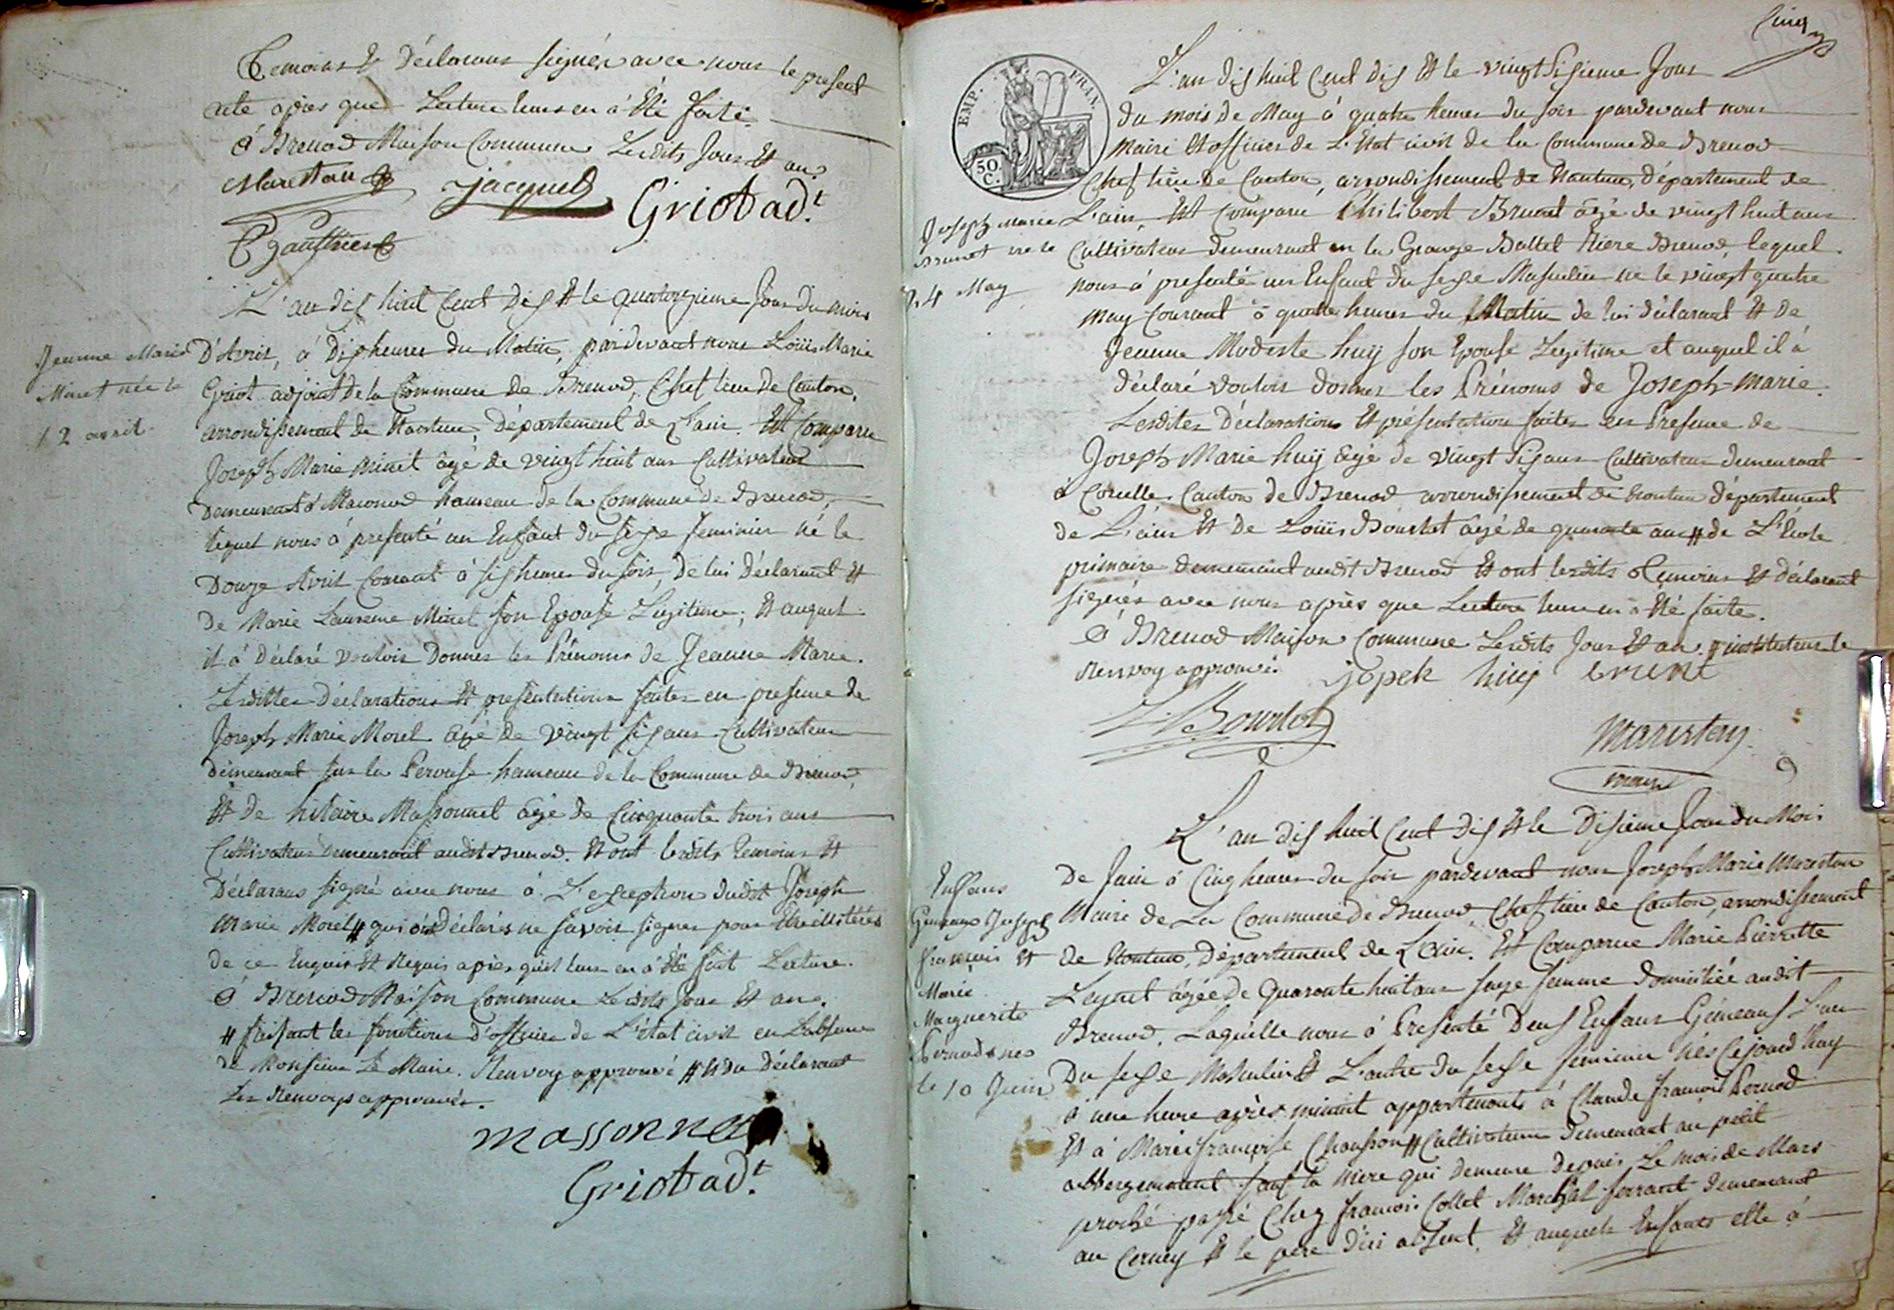 Temoins & Déclarans signés avec nous le present
acte après que Lecture leurs en à Eté faite.
à Brenod Maison Commune Lesdits Jour Et an
Marestan Jacquet Griot adt.
Gauthier
L'an dix huit Cent Dix & le quatorzieme Jour du mois
D'Avril, à Dix heures du Matin, pardevant nous Loüis Marie
Griot adjoint de la Commune de Brenod, Chef lieu de Canton,
arrondissement de Nantua, Département de L'ain. Est Comparu
Joseph Marie Miret âgé de vingt huit ans Cultivateur
Demeurant à Maconod hameau de la Commune de Brenod,
lequel nous à presenté un Enfant du sexe feminin né le
Douze Avril Courant à six heures du soir, de lui Déclarant &
de Marie Laurence Miret son Epouse Legitime; Et auquel
il à Déclaré vouloir Donner les Prénoms de Jeanne Marie.
Lesdittes Déclarations Et presentations faites en presence de
Joseph Marie Morel âgé de vingt six ans Cultivateur
Demeurant sur la Perouse hameau de la Commune de Brenod,
Et de hilaire Massonnet âgé de Cinquante trois ans
Cultivateur Demeurant audit Brenod. Et ont lesdits temoins Et
Déclarans signé avec nous à L'exception dudit Joseph
Marie Morel # qui ont Déclarés ne savoir signer pour Etre illitérés
de ce Enquis Et Requis après qu'il leur en à Eté fait Lecture.
à Brenod Maison Commune Lesdits Jour Et an.
# faisant les fonctions d'officier de L'état civil en L'absence
de Monsieur Le Maire. Renvoy approuvé # # du Déclarant
Les Renvoys approuvés.
massonnet
Griot adt.
Jeanne Marie
Miret née le
12 avril.
Cinq
EMP. FRAN.
50 C.
L'an dix huit Cent dix Et le vingt sixieme Jour
du mois de May à quatre heures du soir pardevant nous
Maire Et officier de L'Etat civil de la Commune de Brenod
Chef lieu de Canton, arrondissement de Nantua, département de
L'ain, Est Comparu Philibert Brunet âgé de vingt huit ans
Cultivateur demeurant en la Grange Battet Riere Brenod, lequel
nous à presenté un Enfant du sexe Masculin né le vingt quatre
May Courant à quatre heures du Matin de lui déclarant Et de
Jeanne Modeste huy son Epouse Legitime et auquel il à
déclaré vouloir donner les Prénoms de Joseph-Marie.
Lesdites Déclarations Et présentation faites en Presence de
Joseph Marie huy âgé de vingt six ans Cultivateur demeurant
à Corcelle Canton de Brenod arrondissement de Nantua département
de L'ain Et de Loüis Bourdot âgé de quarante ans # de L'Ecole
primaire demeurant audit Brenod Et ont lesdits temoins Et déclarant
signés avec nous après que Lecture leur en à Eté faite.
à Brenod Maison Commune Lesdits Jour Et an. # instituteur le
Renvoy approuvé. jopeh huy brunet
L. Bourdot
Marestan
maire
Joseph Marie
Brunet né le
24 May
L'an dix huit Cent dix Et le Dixieme Jour du Mois
De Juin à Cinq heures du soir pardevant nous Joseph Marie Marestan
Maire de La Commune de Brenod, Chef lieu de Canton, arrondissement
de Nantua, Département de L'ain. Est Comparue Marie Pierrette
Leynet âgée de Quarante huit ans sage femme domiciliée audit
Brenod. Laquelle nous à Presenté Deux Enfans Gémeaux L'un
Du sexe Masculin Et L'autre du sexe feminin nés cejourd'huy
à une heure après minuit appartenants à Claude françois Pernod
Et à Marie françoise Chausson # Cultivateur Demeurant au petit
abbergement sauf la mere qui demeure depuis Le mois de Mars
proche passé Chez francois Collet Marechal ferrant demeurant
au Cerney Et le pere d'ici absent. Et auxquels Enfants elle à
Enfans
Gemeaux Joseph
francois Et
Marie
Marguerite
Pernod nes
le 10 Juin